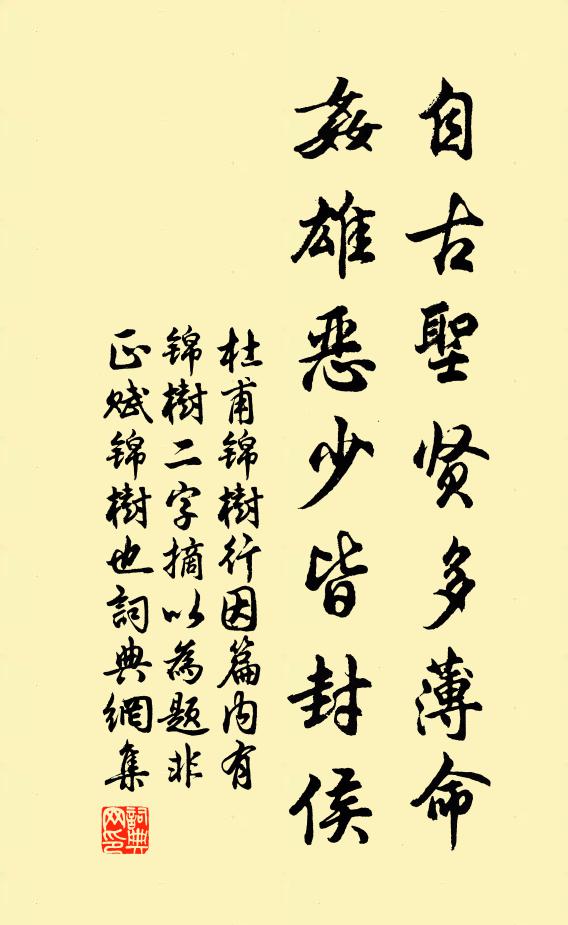 自古聖贤多薄命
姦雄恶少皆封侯
杜甫锦樹行因篇内有
锦樹二字摘以為题非
正赋锦樹也詞典網集
詞典网印